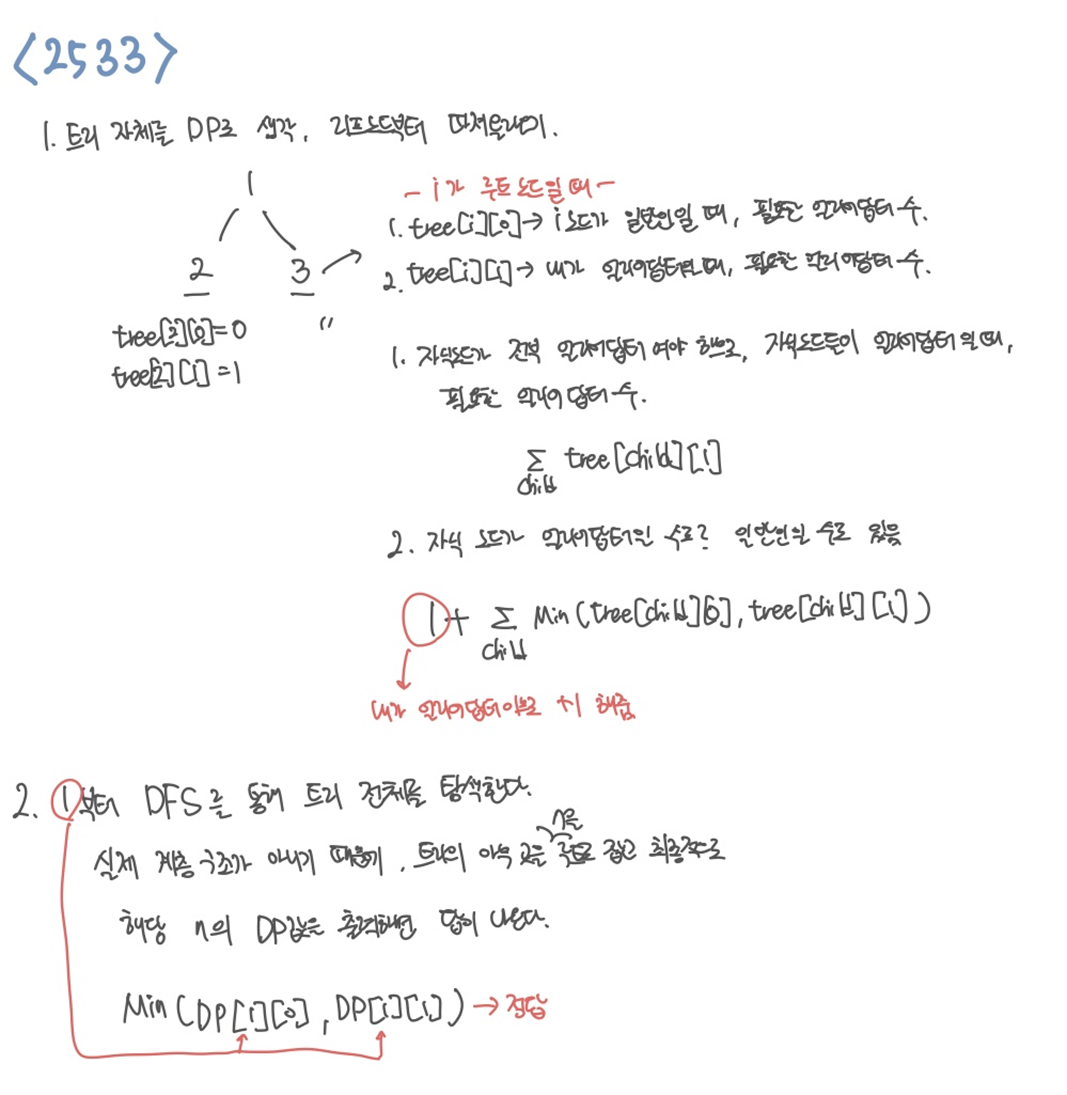 <2533>
1. 트리 자체를 DP로 생각, 리프노드부터 따져올라이.
1
2 3
tree[2][0]=0
tree[2][1]=1
"
- i가 루트노드일 때 -
1. tree[i][0] → i노드가 일반인일 때, 필요한 얼리어답터 수.
2. tree[i][1] → 내가 얼리어답터일 때, 필요한 얼리어답터 수.
1. 자식노드가 전부 얼리어답터여야 하므로, 자식노드들이 얼리어답터일 때,
필요한 얼리어답터 수.
Σ tree[child][1]
child
2. 자식 노드가 얼리어답터일 수도? 일반인일 수도 있음
1 + Σ Min(tree[child][0], tree[child][1])
child
내가 얼리어답터이므로 +1 해줌
2. 1부터 DFS를 통해 트리 전체를 탐색한다.
실제 계층 구조가 아니기 때문에, 트리의 아무 곳을 루트로 잡고 최종적으로
해당 n의 DP값을 출력하면 답이 나온다.
Min(DP[1][0], DP[1][1]) → 정답